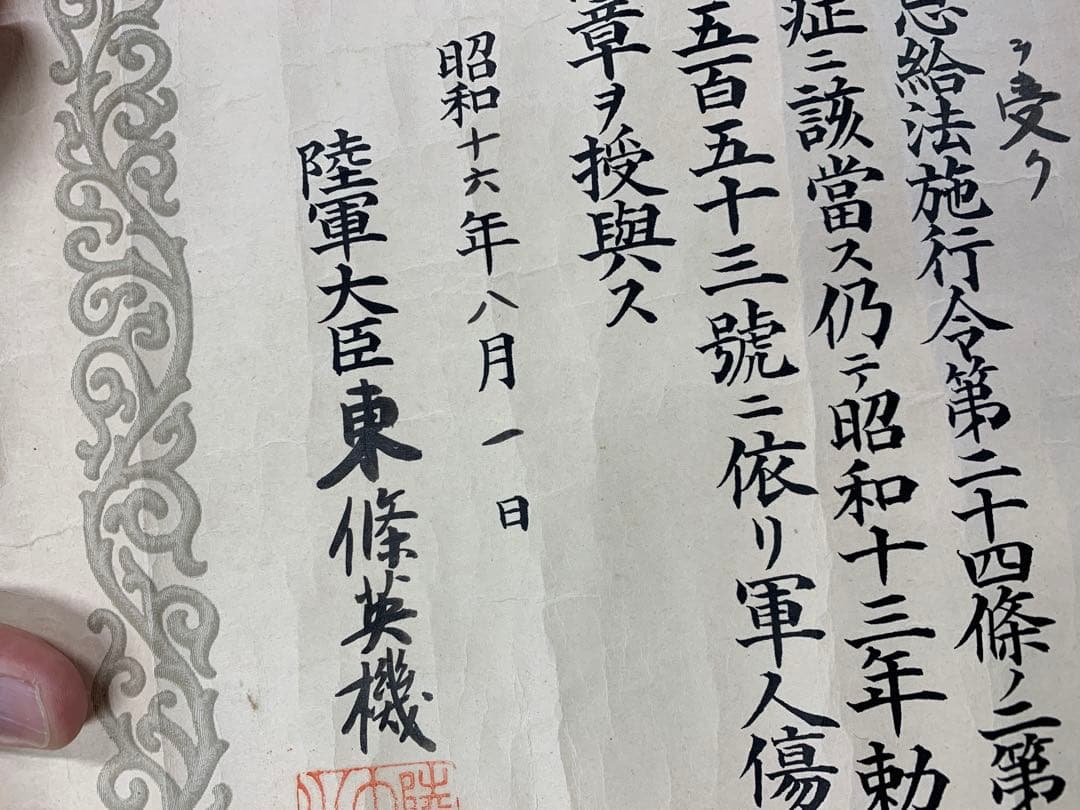 ヲ受ク
恩給法施行令第二十四條ノ二第
症ニ該當ス仍テ昭和十三年勅
五百五十三號ニ依リ軍人傷
章ヲ授與ス
昭和十六年八月一日
陸軍大臣東條英機